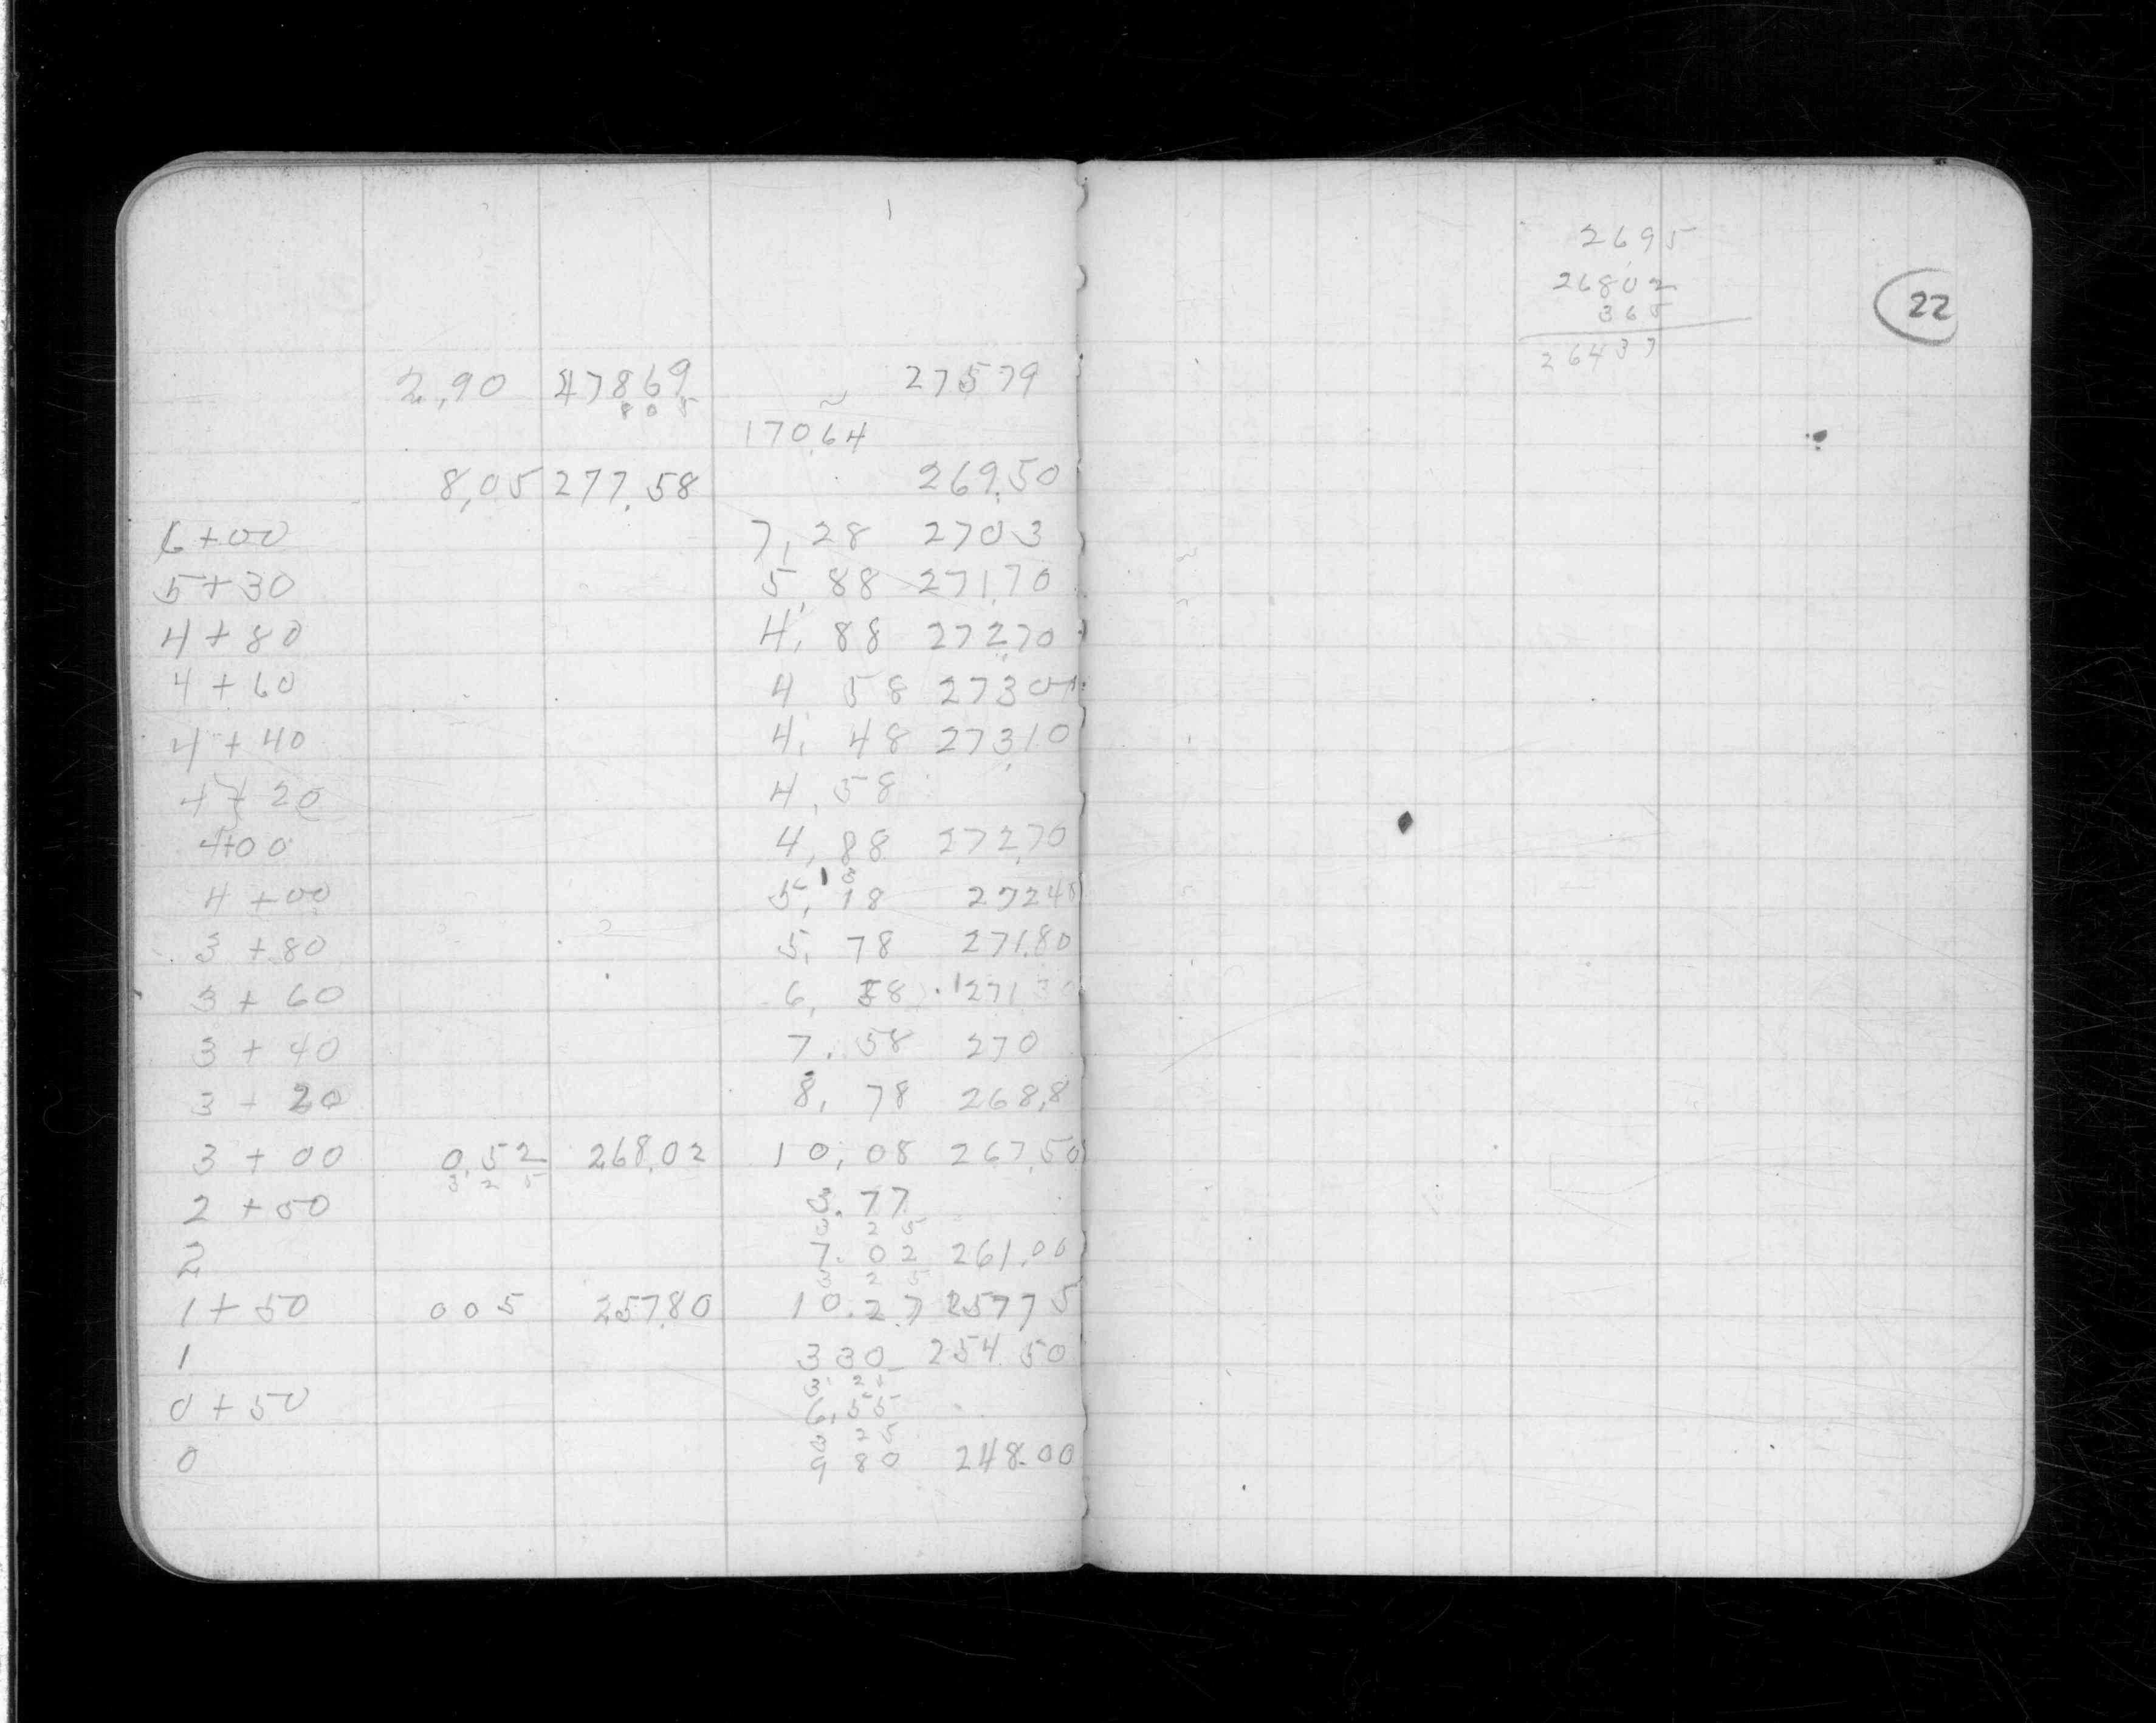 2,90 27869 27579
8 0 5
170,64
8,05 277.58 269.50
6+00 7,28 2703
5+30 5,88 271,70
4+80 4,88 272,70
4+60 4 58 2730
4+40 4, 48 273,10
4+20 4,58
4+00 4,88 272,70
4+00 5,18 27240
3+80 5,78 271.80
3+60 6, 28 271 30
3+40 7.58 270
3+20 8,78 268,8
3+00 0.52 268.02 10,08 267,50
3 2 5
2+50 3.77
3 2 5
2 7.02 261,00
3 2 5
1+50 005 257.80 10.27 25775
1 330 254 50
3 25
0+50 6,55
3 25
0 9 80 248.00
2695
26802
365
26437
22